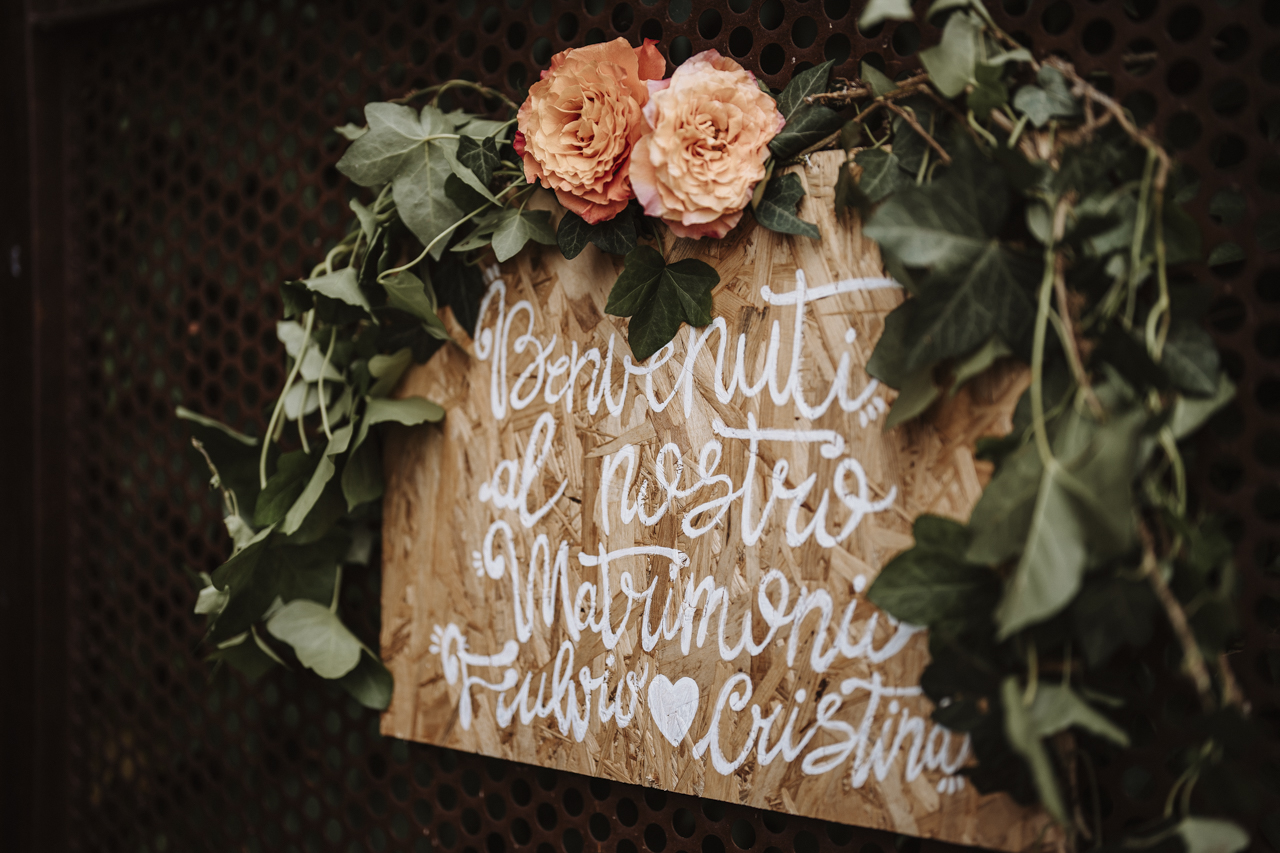 Benvenuti
al nostro
Matrimonio
Fulvio Cristina